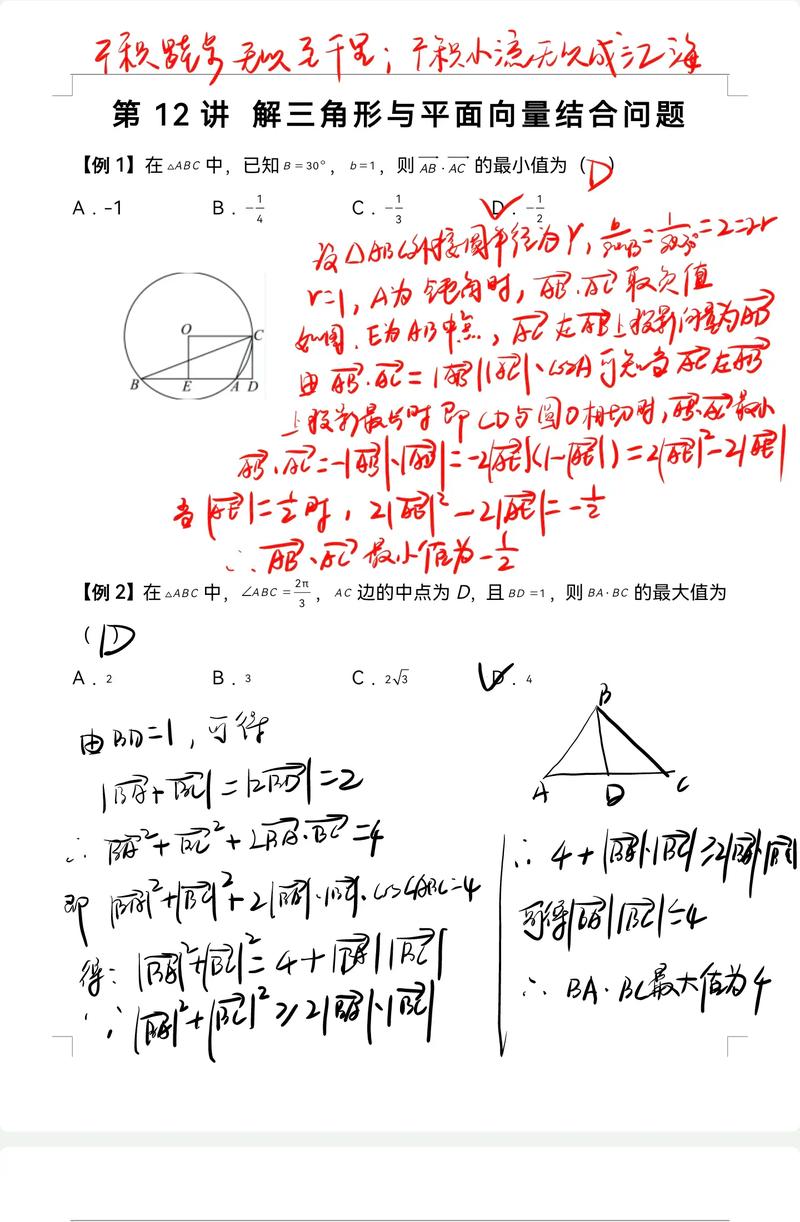 不积跬步无以至千里；不积小流无以成江海
第 12 讲 解三角形与平面向量结合问题
【例 1】在 △ABC 中，已知 B=30°，b=1，则 \overrightarrow{AB}·\overrightarrow{AC} 的最小值为（D）
A．-1 B．-\frac{1}{4} C．-\frac{1}{3} D．-\frac{1}{2}
设△ABC外接圆半径为r，\frac{b}{sinB}=\frac{1}{sin30°}=2=2r
r=1，A为钝角时，\overrightarrow{AB}·\overrightarrow{AC}取负值
如图，E为AB中点，\overrightarrow{AC}在\overrightarrow{AB}上投影向量为\overrightarrow{AD}
由\overrightarrow{AB}·\overrightarrow{AC}=|\overrightarrow{AB}||\overrightarrow{AC}|·cosA可知当\overrightarrow{AC}在\overrightarrow{AB}
上投影最长时即CD与圆O相切时，\overrightarrow{AB}·\overrightarrow{AC}最小
\overrightarrow{AB}·\overrightarrow{AC}=-|\overrightarrow{AB}|·|\overrightarrow{AD}|=-2|\overrightarrow{AE}|(1-|\overrightarrow{AE}|)=2|\overrightarrow{AE}|²-2|\overrightarrow{AE}|
当|\overrightarrow{AE}|=\frac{1}{2}时，2|\overrightarrow{AE}|²-2|\overrightarrow{AE}|=-\frac{1}{2}
∴\overrightarrow{AB}·\overrightarrow{AC}最小值为-\frac{1}{2}
O C
B E A D
【例 2】在 △ABC 中，∠ABC=\frac{2π}{3}，AC 边的中点为 D，且 BD=1，则 BA·BC 的最大值为
（D）
A．2 B．3 C．2\sqrt{3} D．4
B
A D C
由BD=1，可得
|\overrightarrow{BA}+\overrightarrow{BC}|=|2\overrightarrow{BD}|=2
∴\overrightarrow{BA}²+\overrightarrow{BC}²+2\overrightarrow{BA}·\overrightarrow{BC}=4
即|\overrightarrow{BA}|²+|\overrightarrow{BC}|²+2|\overrightarrow{BA}|·|\overrightarrow{BC}|·cos∠ABC=4
得：|\overrightarrow{BA}|²+|\overrightarrow{BC}|²=4+|\overrightarrow{BA}||\overrightarrow{BC}|
∵|\overrightarrow{BA}|²+|\overrightarrow{BC}|²≥2|\overrightarrow{BA}|·|\overrightarrow{BC}|
∴4+|\overrightarrow{BA}|·|\overrightarrow{BC}|≥2|\overrightarrow{BA}|·|\overrightarrow{BC}|
可得|\overrightarrow{BA}||\overrightarrow{BC}|≤4
∴BA·BC最大值为4